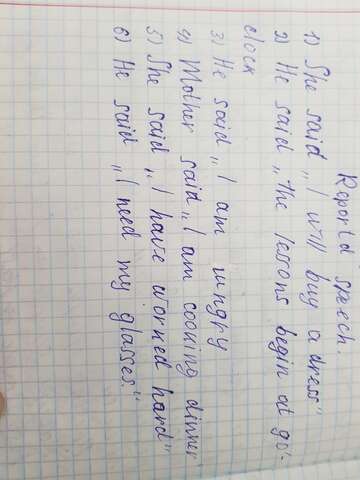 Reportd speech.
1) She said „I will buy a dress"
2) He said „the lessons begin at 9 o'-
clock
3) He said „I am ungry
4) Mother said „I am cooking dinner
5) She said „I have worked hard"
6) He said „I need my glasses."